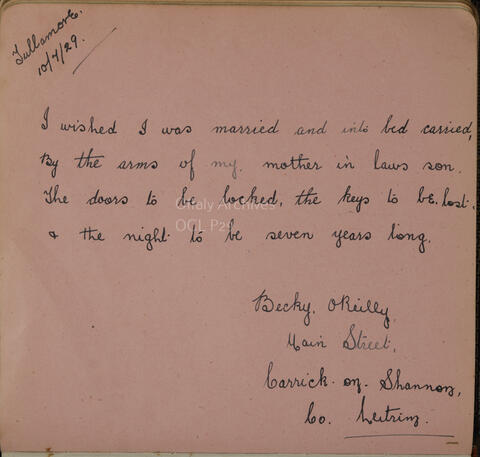 Tullamore.
10/7/29.
I wished I was married and into bed carried,
By the arms of my mother in laws son.
The doors to be locked, the keys to be lost.
& the night to be seven years long.
Offaly Archives
OCL P25
Becky. O'Reilly,
Main Street,
Carrick-on-Shannon,
Co. Leitrim.